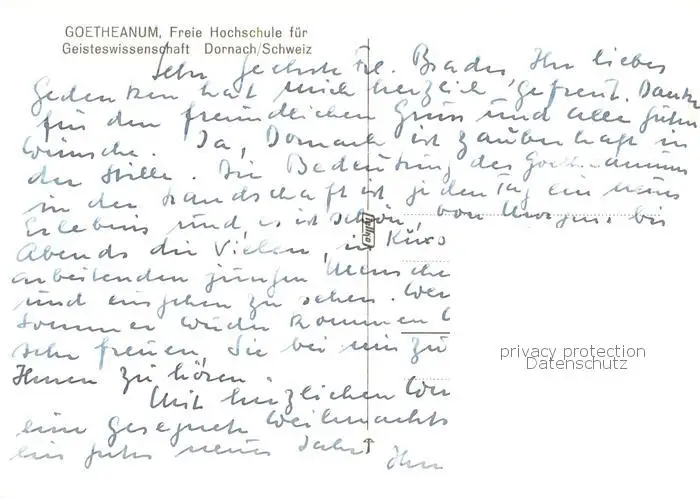 GOETHEANUM, Freie Hochschule für
Geisteswissenschaft Dornach/Schweiz
Sehr geehrte Frl. Ihr liebes
Gedenken hat mich herzlich gefreut. Danke
für den freundlichen Gruss und alle guten
Wünsche. Ja, Dornach ist zauberhaft in
der Stille. Die Bedeutung des Goetheanums
in der Landschaft ist jeden Tag ein neues
Erlebnis und, es ist schön, von Morgens bis
Abends die Vielen, in Kurs
arbeitenden jungen Mensche
und eingehen zu sehen. Wen
Sommer wieder kommen
sehr freuen, Sie bei mir zu
Ihnen zu hören.
Mit herzlichen Wün
eine gesegnete Weihnachts
ein gutes neues Jahr Ihr
privacy protection
Datenschutz